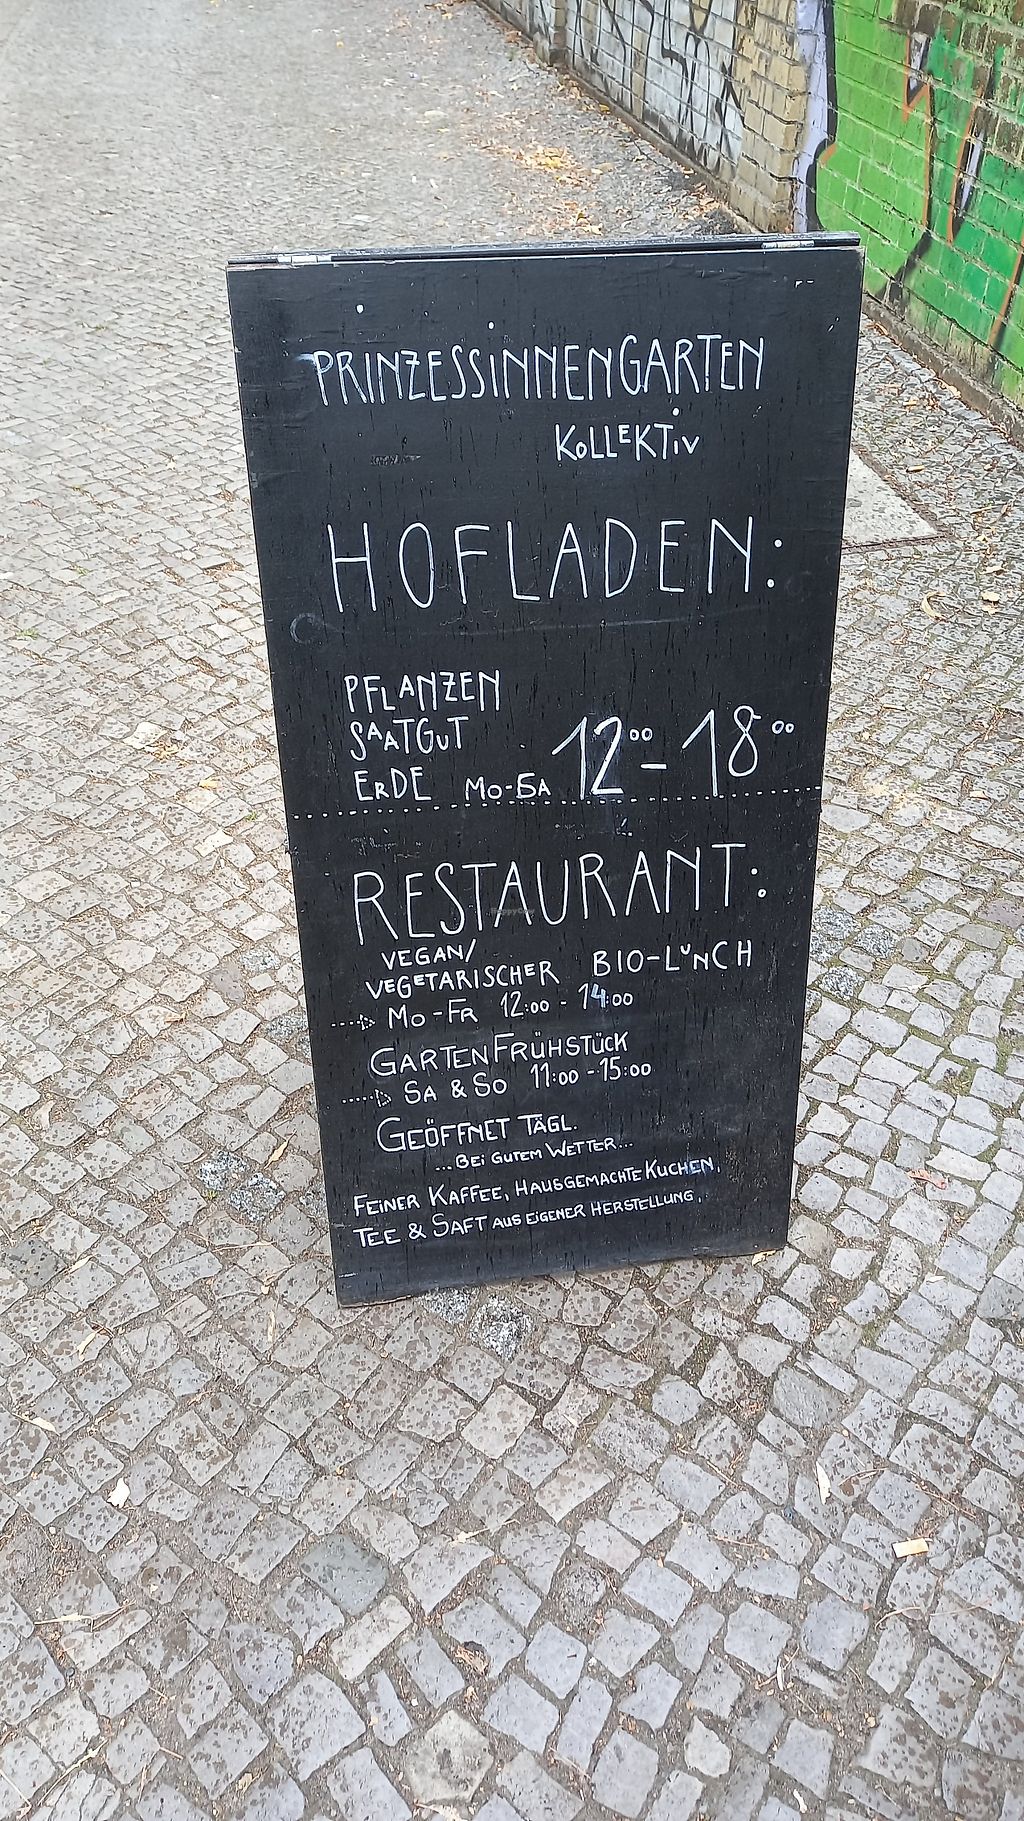 PRINZESSINNENGARTEN
KOLLEKTIV
HOFLADEN:
PFLANZEN
SAATGUT
ERDE MO-SA 12⁰⁰ - 18⁰⁰
RESTAURANT:
VEGAN/
VEGETARISCHER BIO-LUNCH
MO-FR 12:00 - 14:00
GARTENFRÜHSTÜCK
SA & SO 11:00 - 15:00
GEÖFFNET TÄGL.
...BEI GUTEM WETTER...
FEINER KAFFEE, HAUSGEMACHTE KUCHEN,
TEE & SAFT AUS EIGENER HERSTELLUNG.